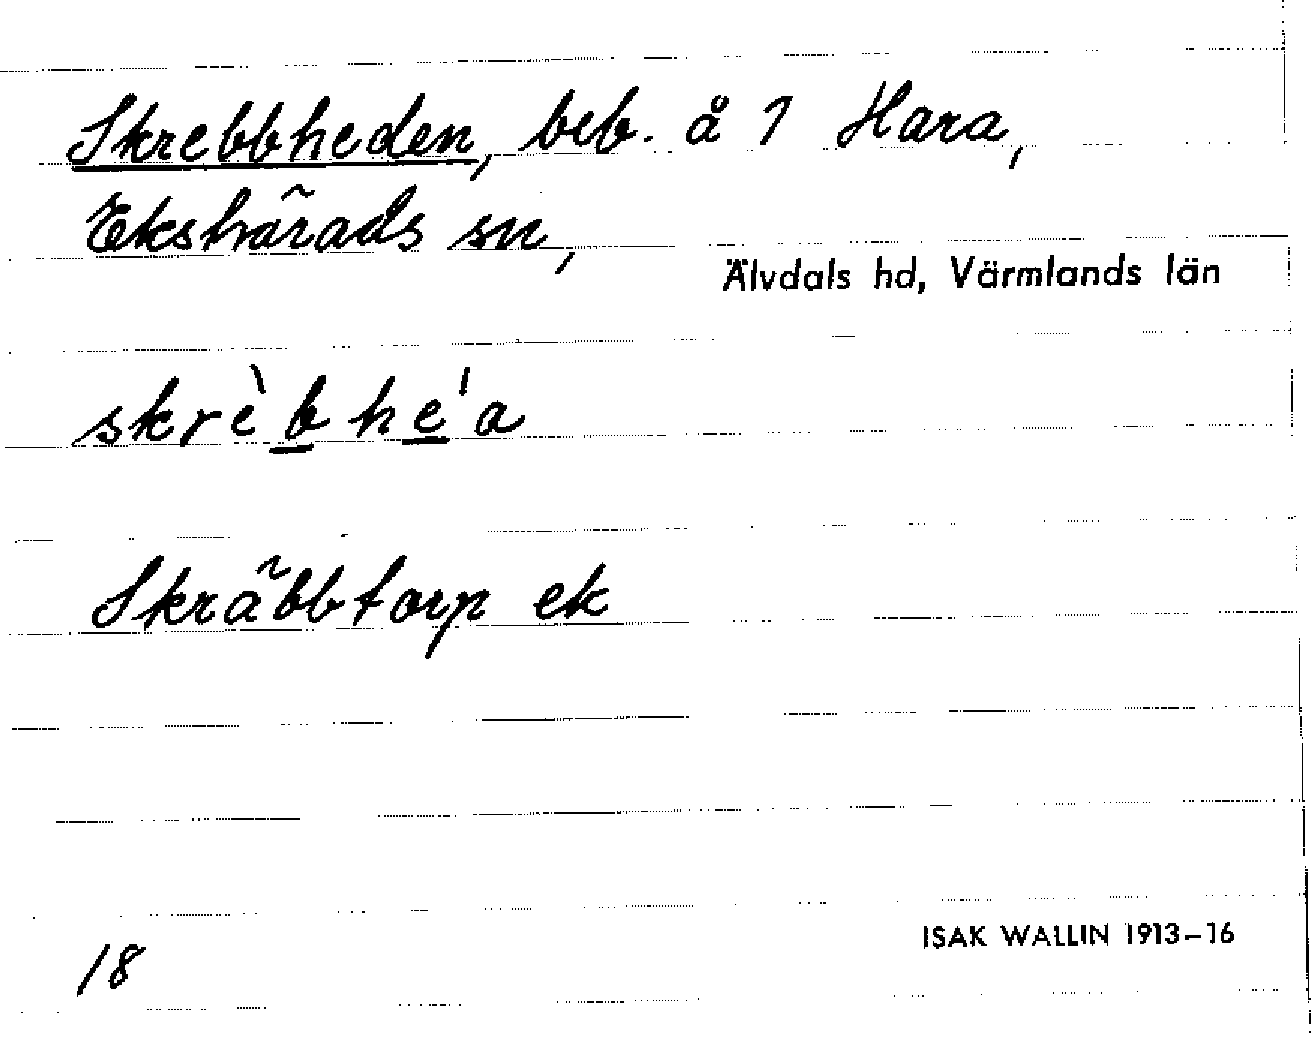 Skrebbheden, beb. å 1 Hara,
Ekshärads sn,
Älvdals hd, Värmlands län
skrèbhe'a
Skräbbtorp ek
18
ISAK WALLIN 1913-16